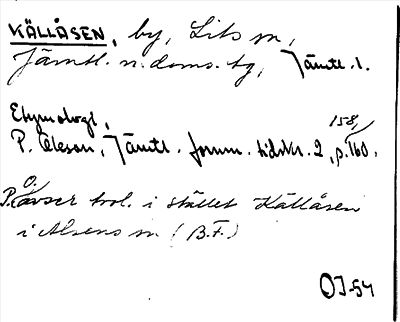 KÄLLÅSEN, by, Lits sn,
Jämtl. n. doms. tg, Jämtl. l.
Etymologi,
158,
P. Oleson, Jämtl. fornm. tidskr. 2, p. 160.
P.O. avser trol. i stället Källåsen
i Alsens sn (B.F.)
OJ-54